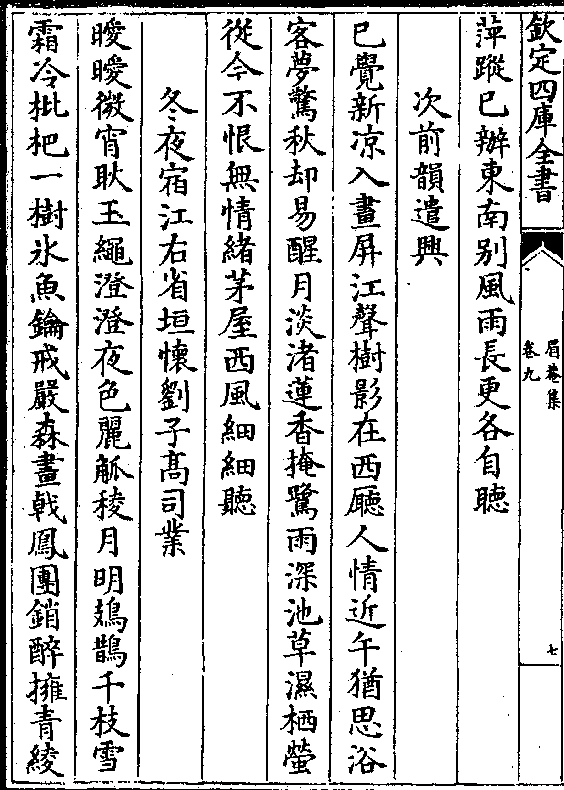 欽定四庫全書
眉菴集
卷九
七
萍蹤已辦東南别風雨長更各自聽
次前韻遣興
已覺新凉入畫屏江聲樹影在西廳人情近午猶思浴
客夢驚秋却易醒月淡渚蓮香掩鷺雨深池草濕栖螢
從今不恨無情緒茅屋西風細細聽
冬夜宿江右省垣懷劉子髙司業
曖曖微宵耿玉繩澄澄夜色麗觚稜月明鳷鵲千枝雪
霜冷枇杷一樹氷魚鑰戒嚴森畫㦸鳳團銷醉擁青綾